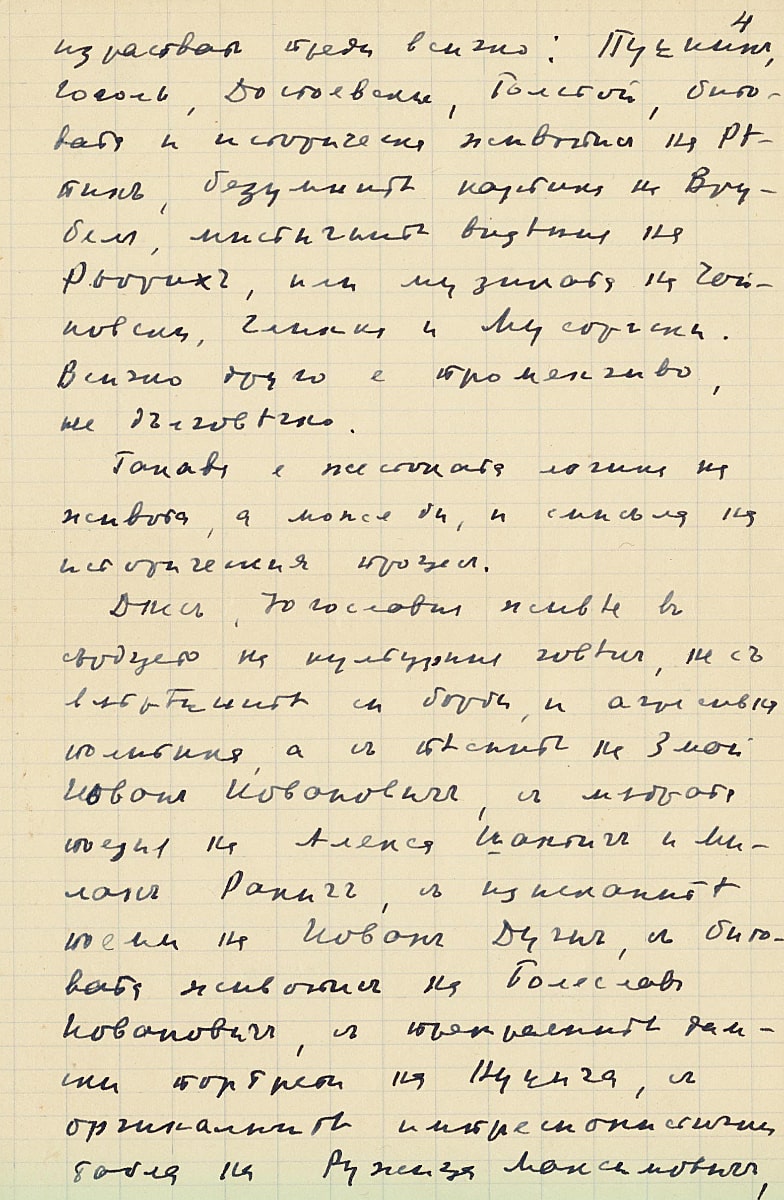 4
израстватъ преди всичко: Пушкинъ,
Гоголь, Достоевски, Толстой, бито-
вата и историческа живопись на Рѣ-
пинъ, безумнитѣ картини на Вру-
бель, мистичнитѣ видѣния на
Рьорихъ, или музиката на Чай-
ковски, Глинка и Мусоргски.
Всичко друго е промѣнчиво,
не дълговѣчно.
Такава е жестоката логика на
живота, а може би, и смисъла на
историческия процесъ.
Днесъ, Югославия живѣе въ
сърдцето на културния човѣкъ, не съ
вътрѣшнитѣ си борби, и агресивна
политика, а съ пѣснитѣ на Змай
Йованъ Йовановичъ, съ мѫдрата
поезия на Алекса Шантичъ и Ми-
ланъ Ракичъ, съ изисканитѣ
поеми на Йованъ Дучичъ, съ бито-
вата живопись на Болеславъ
Йовановичъ, съ прекраснитѣ дам-
ски портрети на
, съ
оргиналнитѣ импресионистични
табла на Ружица Максимовичъ,